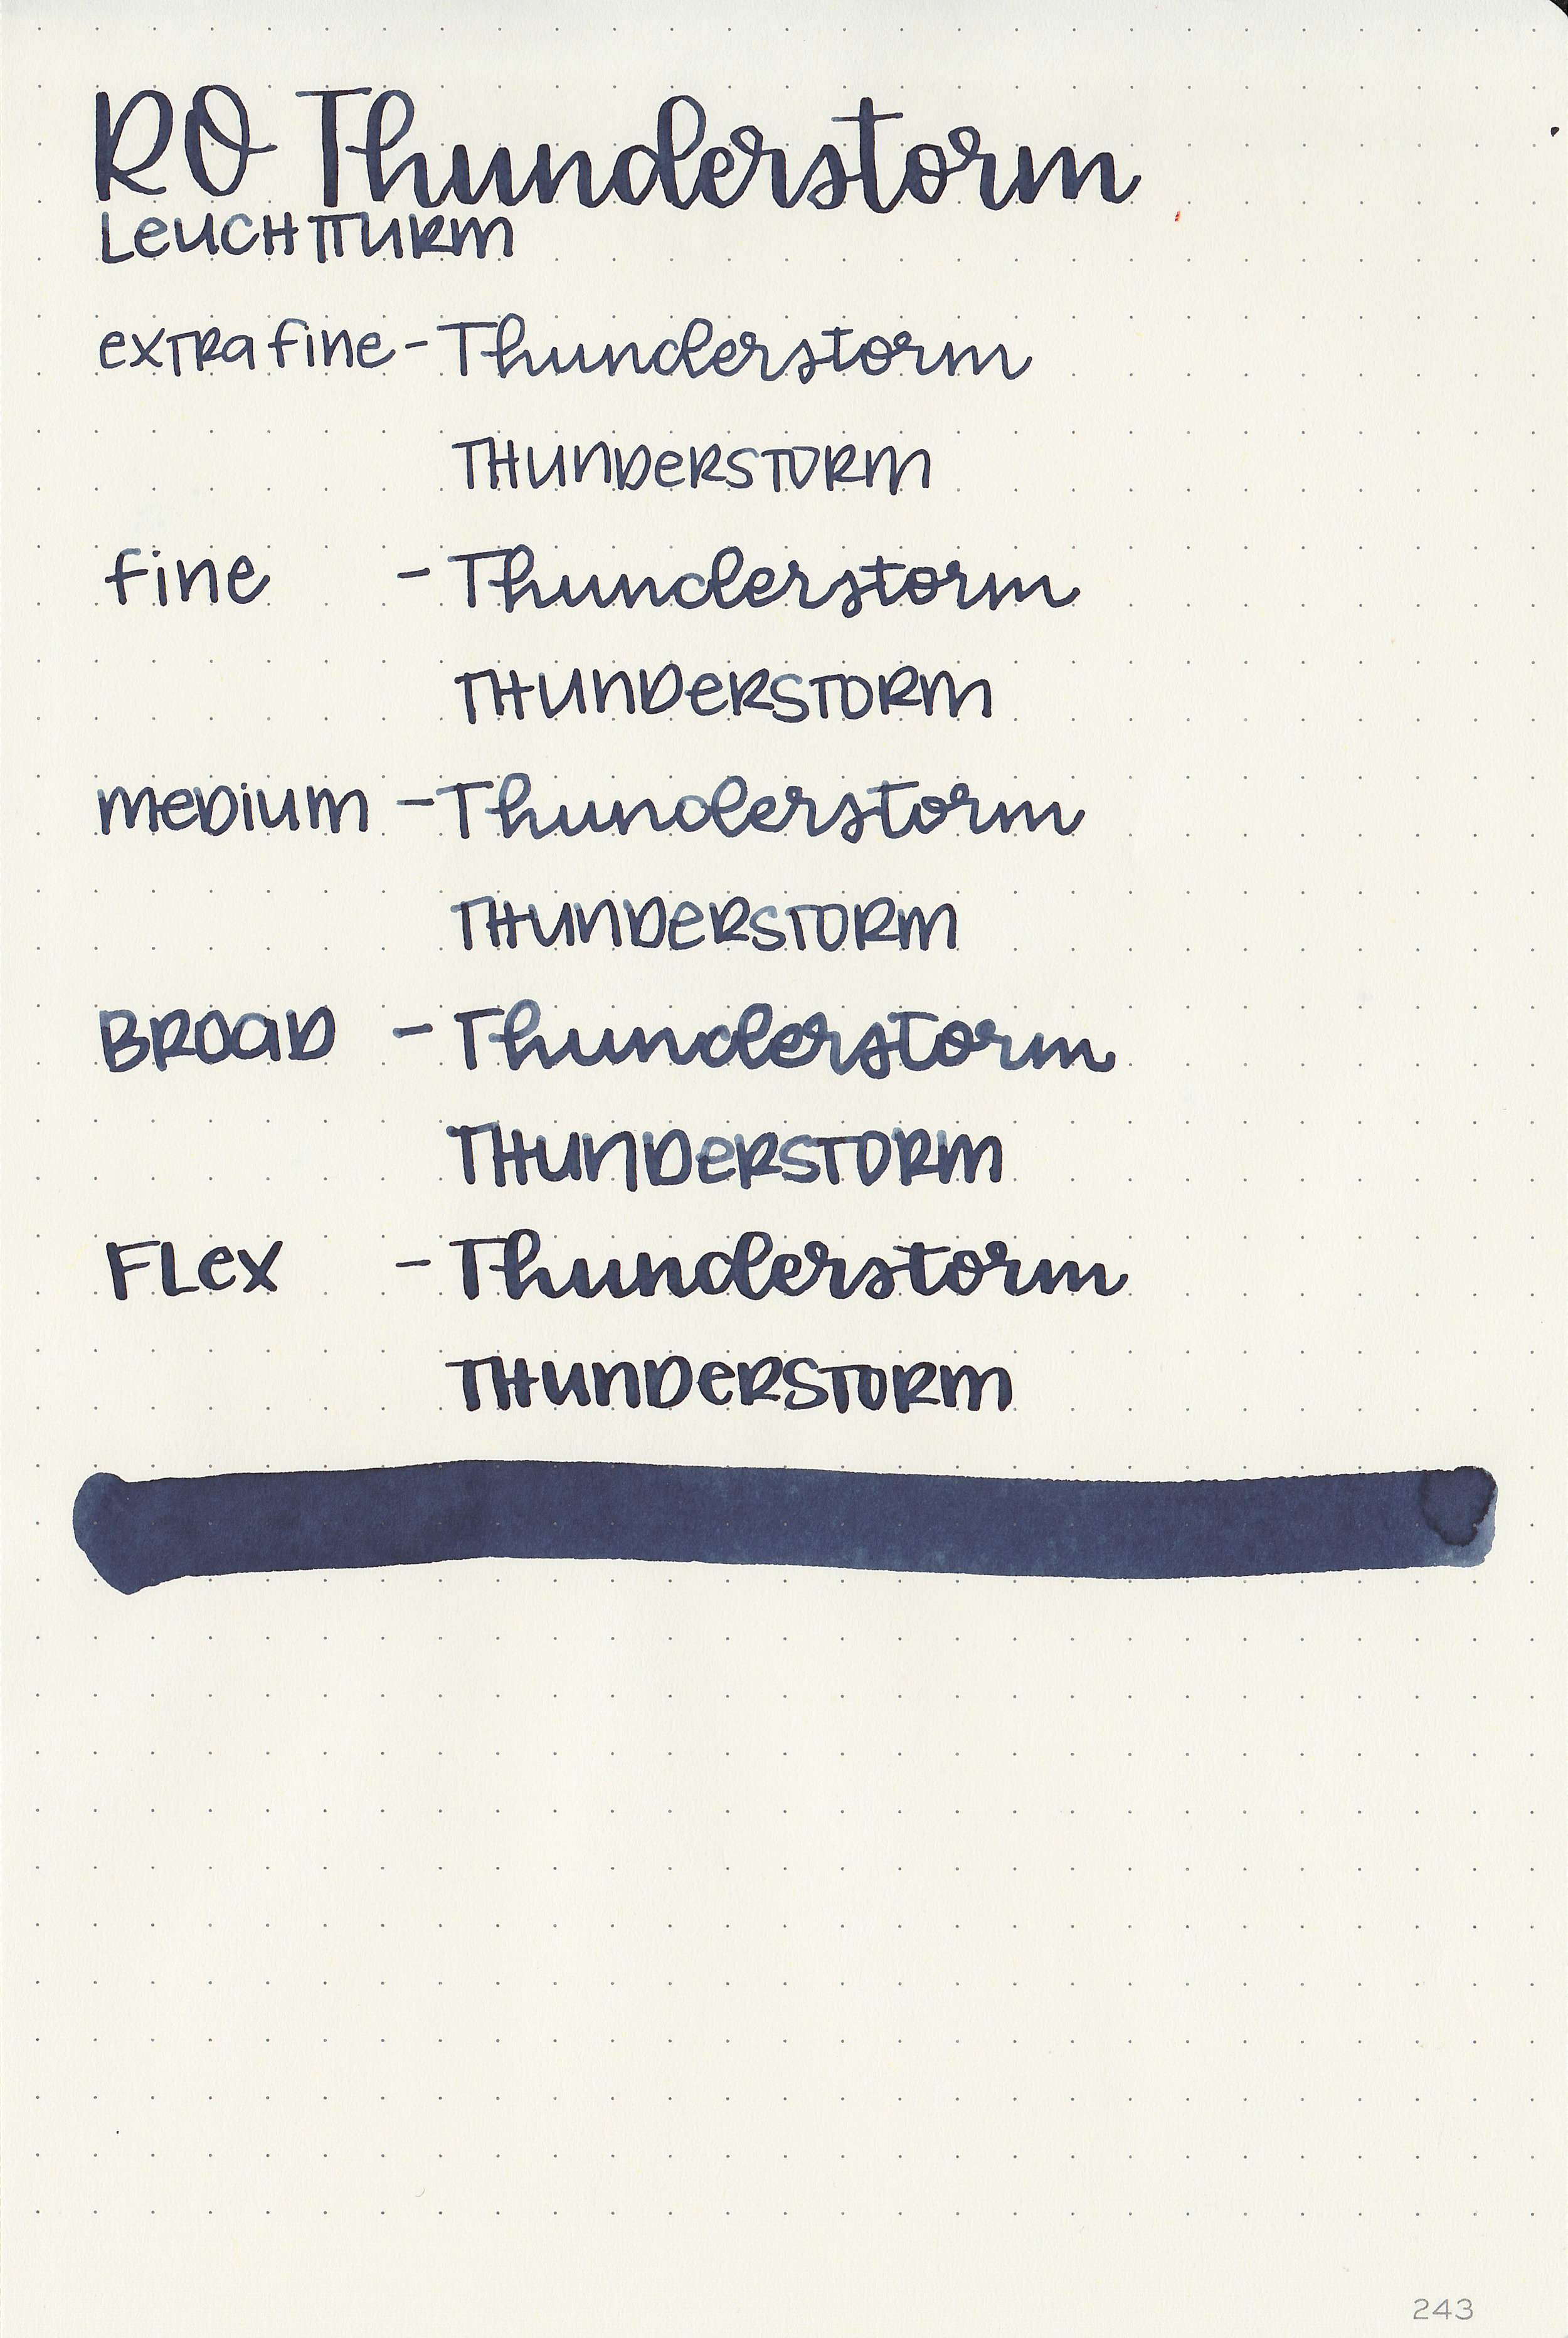 RO Thunderstorm
LeUCHTTURM
exTRa fine - Thunderstorm
THUnDeRSTORM
fine - Thunderstorm
THUnDeRSTORM
meDium - Thunderstorm
THUnDeRSTORM
BROaD - Thunderstorm
THUnDeRSTORM
FLex - Thunderstorm
THUnDeRSTORM
243